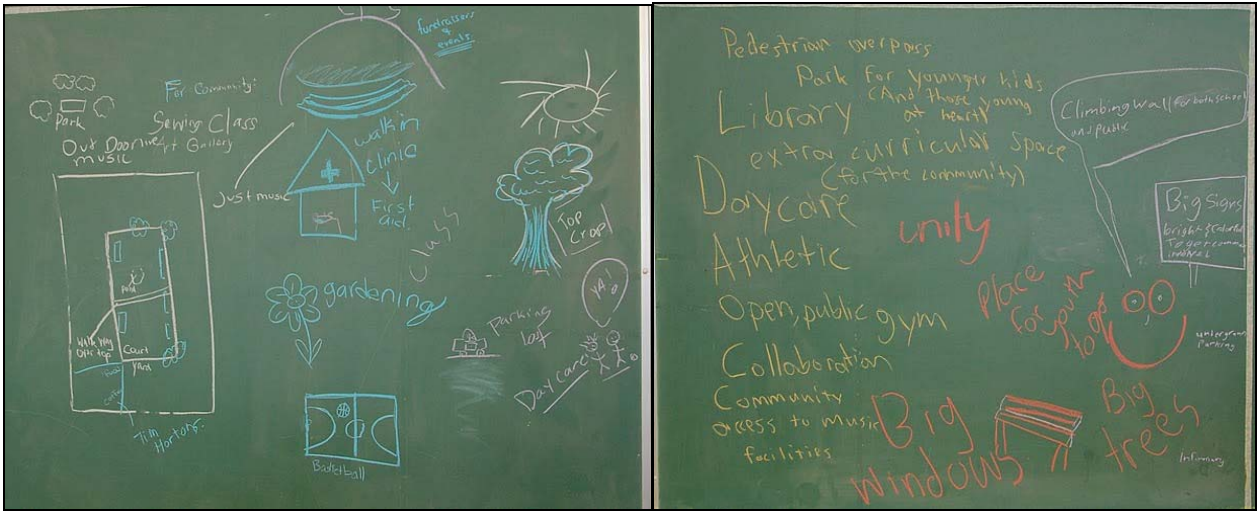 fundraisers
&
events
For Community:
Park
Sewing Class
Art Gallery
Out Door live
music
Just music
walk in
clinic
First
aid.
Top
Crop
gardening
Class
Parking
lot
YA!
Daycare
Walk way
Over top
Court
YARD
Tim
Hortons.
Basketball
Pedestrian overpass
Park for younger kids
(And those young
at heart)
Library
extra curricular space
(for the community)
Daycare
Athletic
Open, public gym
Collaboration
Community
access to music
facilities
unity
Place
for youth
to go
Big
windows
Big
trees
Climbing wall (for both school
and public
Big Signs
bright & colorful
To get community
involved
underground
Parking
Infirmary